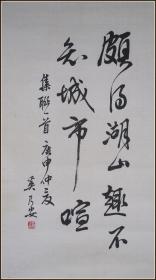 颇得湖山趣不
知城市喧
集联一首庚申仲夏
吴乃安